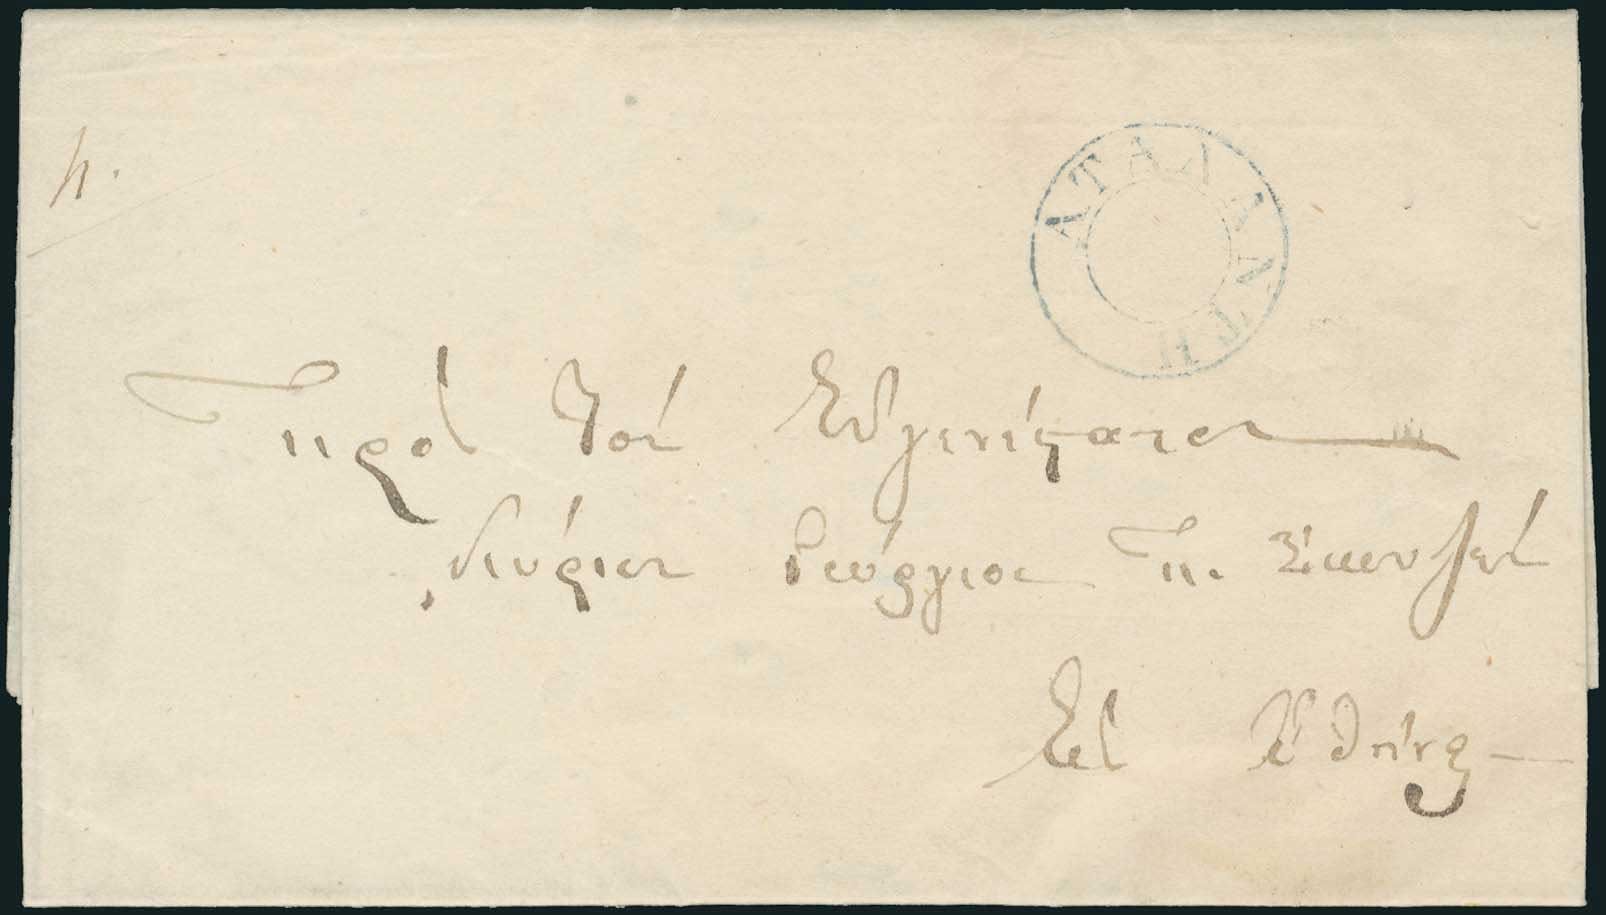 ΑΤΑΛΑΝΤΗ
Πρὸς Τὸν Εὐγενέστατον
Κύριον Γεώργιον Π. Σκουζὲν
Εἰς Ἀθήνας